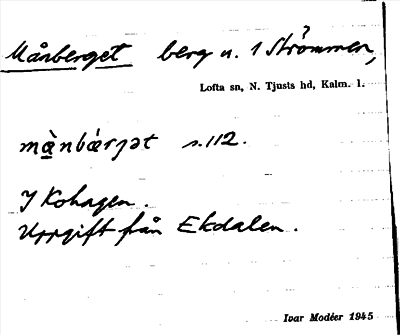 Månberget berg u. 1 Strömmen,
Lofta sn, N. Tjusts hd, Kalm. l.
mǟnbárjət s. 112.
I Kohagen.
Uppgift från Ekdalen.
Ivar Modéer 1945